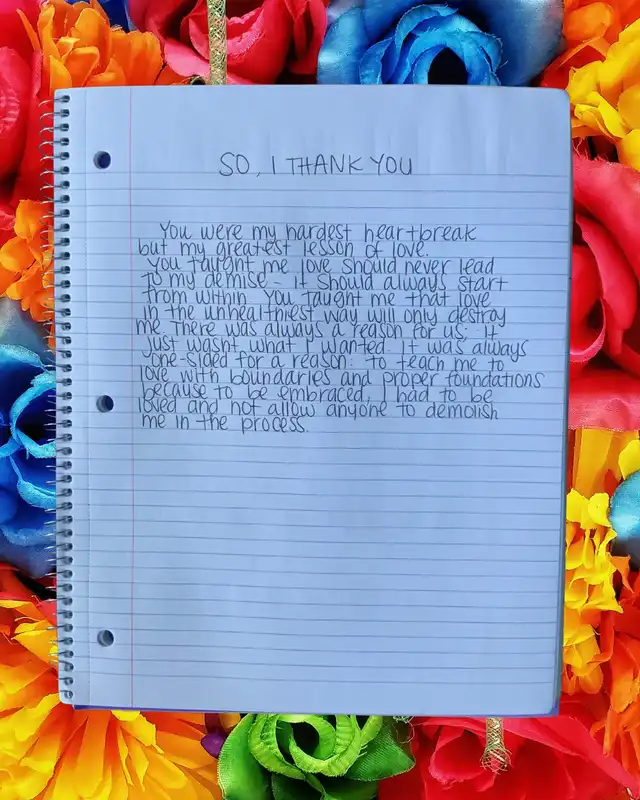 SO, I THANK YOU
You were my hardest heartbreak
but my greatest lesson of love.
You taught me love should never lead
to my demise - it should always start
from within. You taught me that love
in the unhealthiest way will only destroy
me. There was always a reason for us. It
just wasn't what I wanted. It was always
one-sided for a reason: to teach me to
love with boundaries and proper foundations
because to be embraced, I had to be
loved and not allow anyone to demolish
me in the process.